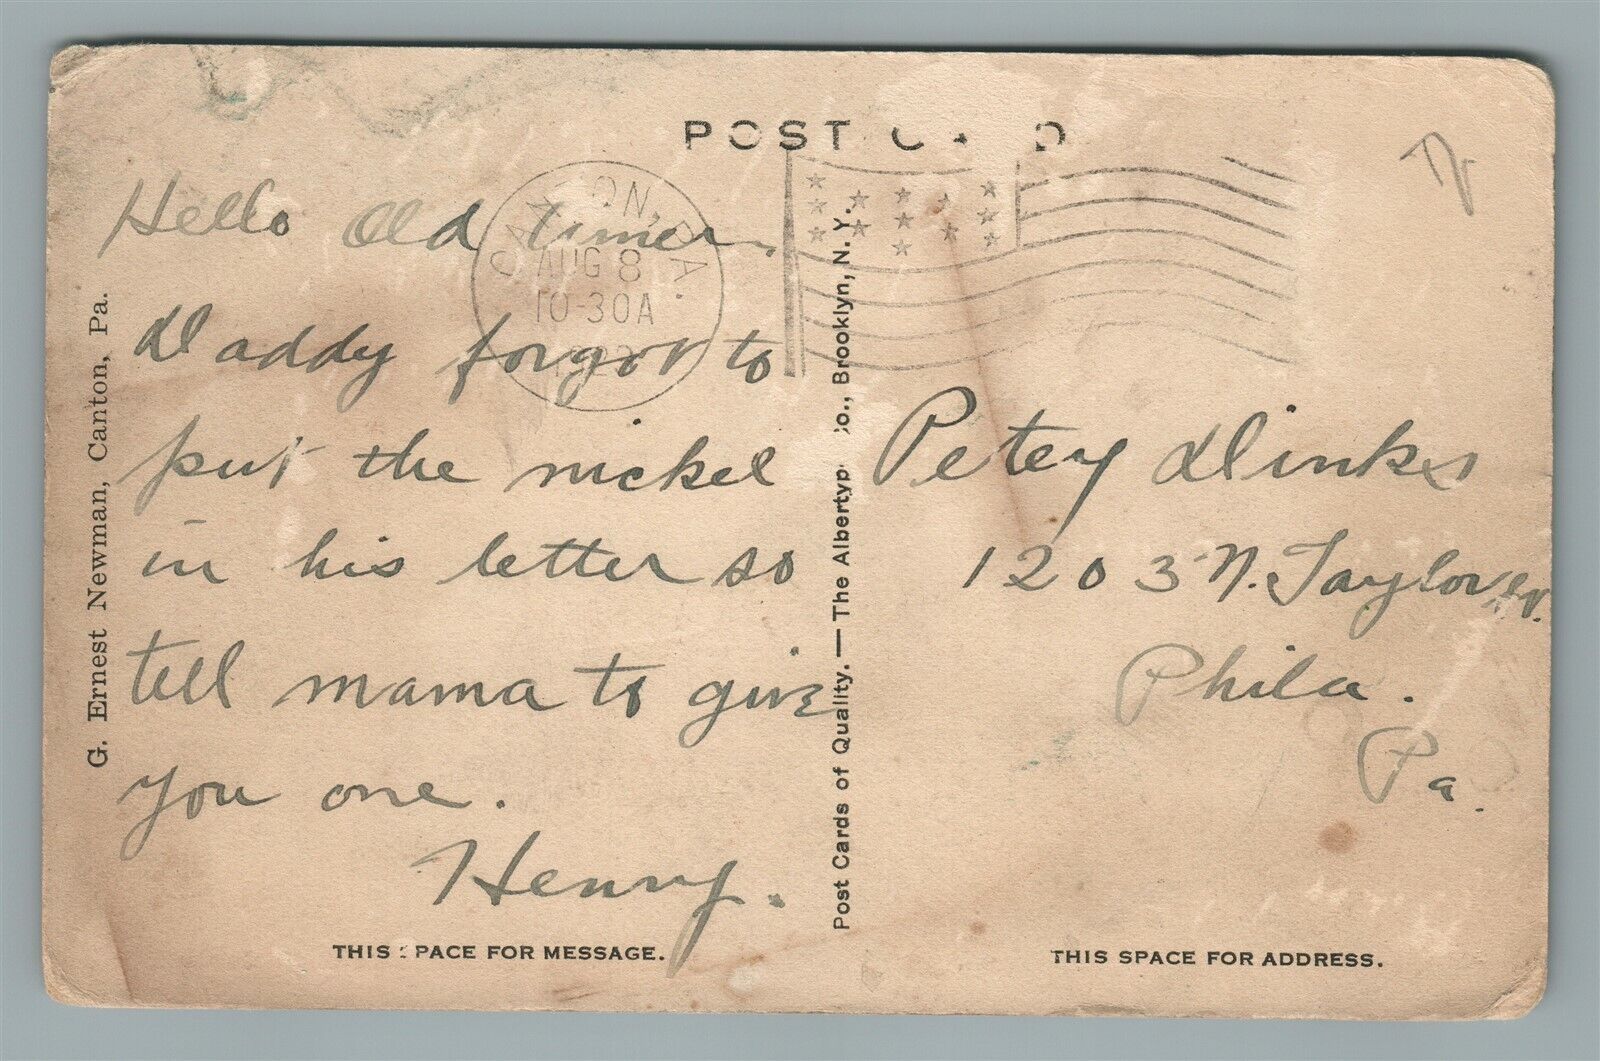 POST CARD
CANTON, PA.
AUG 8
10-30A
Hello Old timer.
Daddy forgot to
put the nickel
in his letter so
tell mama to give
you one.
Henry.
THIS SPACE FOR MESSAGE.
G. Ernest Newman, Canton, Pa.
Post Cards of Quality. — The Albertype Co., Brooklyn, N. Y.
Petey Dinks
1203 N. Taylor St.
Phila.
Pa.
THIS SPACE FOR ADDRESS.